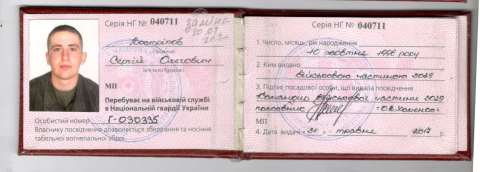 Серія НГ № 040711
заміна
Вострілов
Сергій Олегович
МП
Перебуває на військовій службі
в Національній гвардії України
Особистий номер Г-030335
Власнику посвідчення дозволяється зберігання та носіння
табельної вогнепальної зброї.
Серія НГ № 040711
1. Число, місяць, рік народження
10 жовтня 1996 року
2. Ким видано
Військовою частиною 3029
МП
3. Підпис посадової особи, що видала посвідчення
Командир військової частини 3029
полковник
4. Дата видачі « 31 » травня 2017 р.